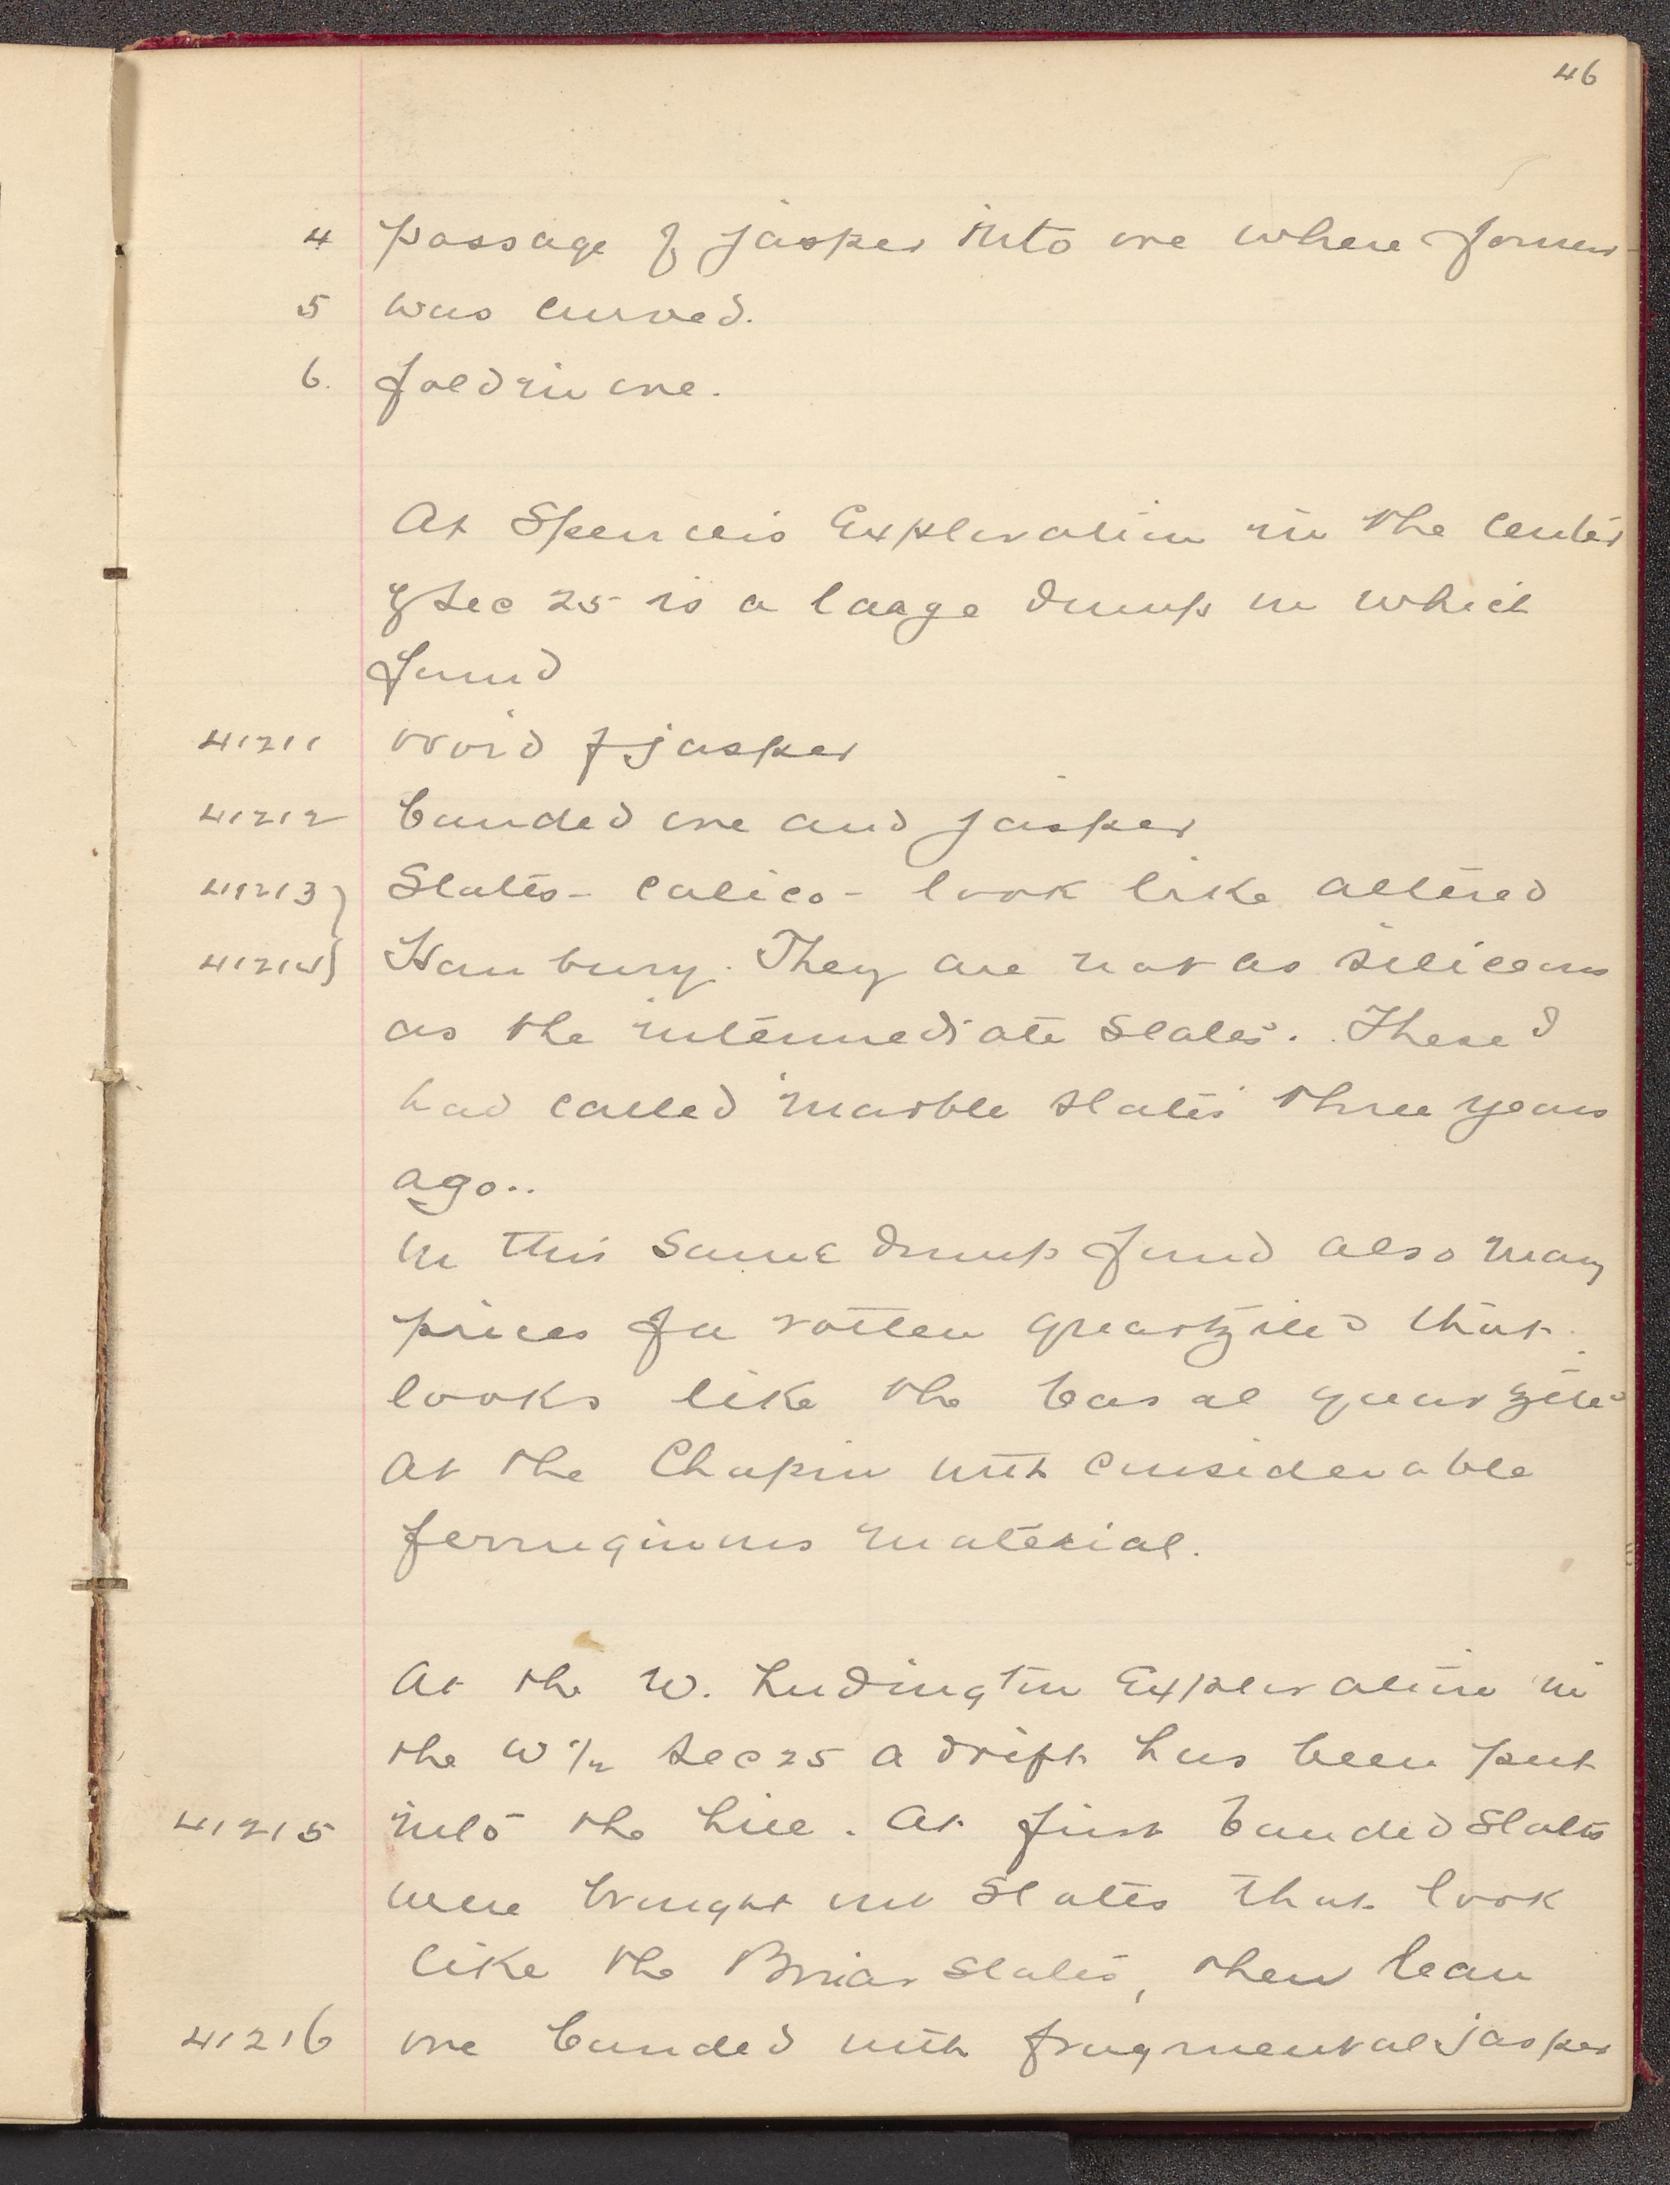 46
4 passage of jasper into ore where former
5 was curved.
6. fold in ore.
At Spencer's Exploration in the center
of Sec 25 is a large dump in which
found
41211 ovoid of jasper
41212 banded ore and jasper
41213} Slates - calico - look like altered
41214} Hanbury. They are not as siliceous
as the intermediate slates. These I
had called marble slates three years
ago..
In this same dump found also many
pieces of a rotten quartzite that
looks like the basal quartzite
at the Chapin with considerable
ferruginous material.
At the W. Ludington Exploration in
the W 1/2 Sec 25 a drift has been put
41215 into the hill. At first banded slates
were brought out slates that look
like the Briar slates, then lean
41216 ore banded with fragmental jasper